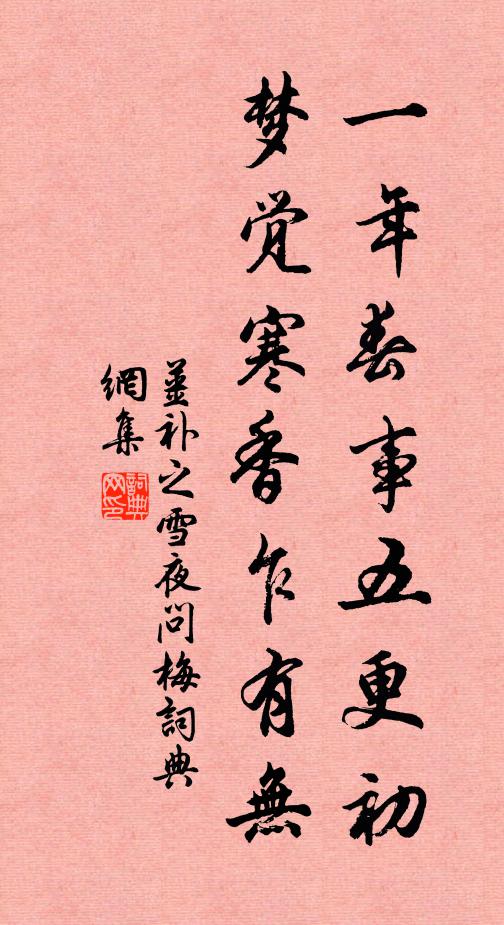 一年春事五更初
梦觉寒香乍有無
薑补之雪夜問梅詞典
網集
詞典
网印